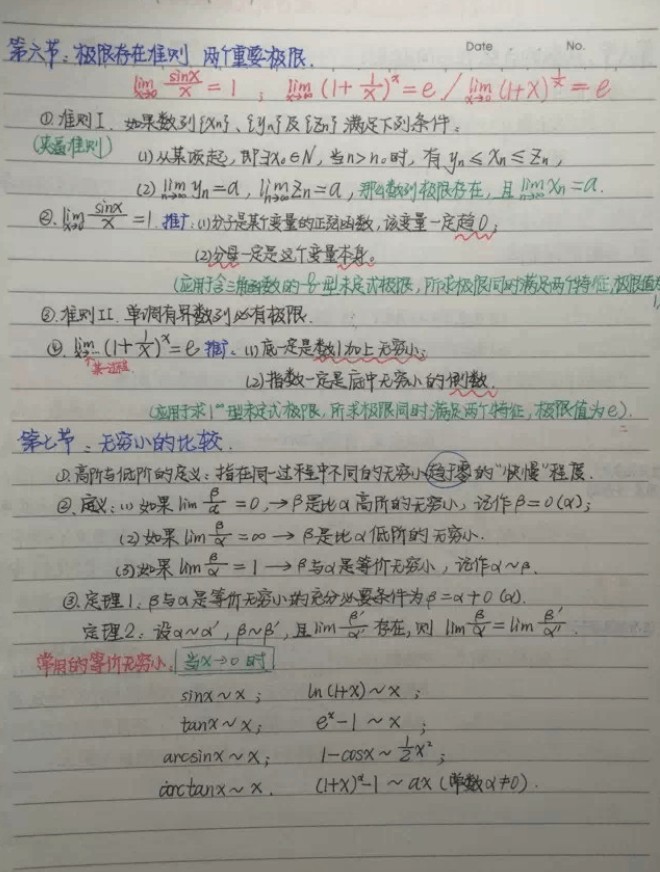 Date No.
第六节：极限存在准则 两个重要极限.
lim x→0 sinx/x = 1 ; lim x→∞ (1+1/x)^x = e / lim x→0 (1+x)^(1/x) = e
①.准则I. 如果数列{Xn}、{yn}及{Zn}满足下列条件。
(夹逼准则) (1)从某项起，即∃x₀∈N，当n>n₀时，有yn≤xn≤zn，
(2) lim n→∞ yn=a，lim n→∞ Zn=a，那么数列极限存在，且 lim n→∞ Xn=a.
②.lim x→0 sinx/x=1. 推广：(1)分子是某个变量的正弦函数，该变量一定趋0；
(2)分母一定是这个变量本身。
(应用于含三角函数的0/0型未定式极限，所求极限同时满足两个特征，极限值为
1,
③.准则II. 单调有界数列必有极限.
④. lim x→∞ (1+1/x)^x=e 推广：(1)底一定是数1加上无穷小；
某一过程 (2)指数一定是底中无穷小的倒数.
(应用于求1^∞型未定式极限，所求极限同时满足两个特征，极限值为e).
第七节：无穷小的比较.
①.高阶与低阶的定义：指在同一过程中不同的无穷小趋于零的“快慢”程度.
②.定义：(1)如果lim β/α=0，→β是比α高阶的无穷小，记作β=0(α)；
(2)如果lim β/α=∞→β是比α低阶的无穷小.
(3)如果lim β/α=1→β与α是等价无穷小，记作α~β.
③.定理1：β与α是等价无穷小的充分必要条件为β=α+0(α).
定理2：设α~α′，β~β′，且lim β′/α′存在，则 lim β/α=lim β′/α′.
常用的等价无穷小：当x→0时
sinx~x； ln(1+x)~x；
tanx~x； e^x-1~x；
arcsinx~x； 1-cosx~1/2x²；
arctanx~x. (1+x)^α-1~αx(常数α≠0).